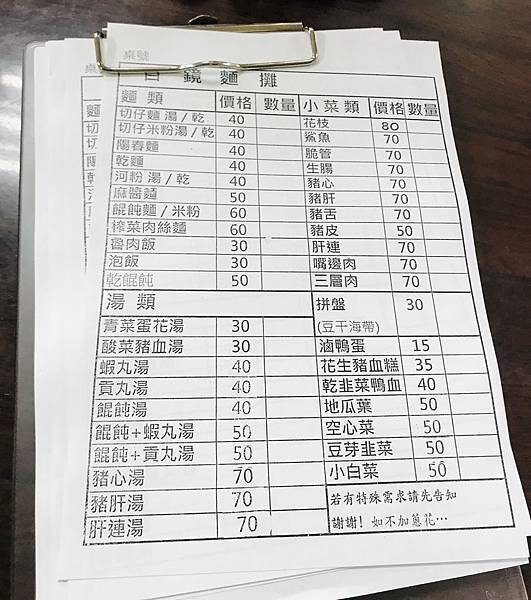 桌號
目鏡麵攤
麵類 價格 數量 小菜類 價格 數量
切仔麵 湯/乾 40 花枝 80
切仔米粉湯/乾 40 鯊魚 70
陽春麵 40 脆管 70
乾麵 40 生腸 70
河粉 湯/乾 40 豬心 70
麻醬麵 50 豬肝 70
餛飩麵/米粉 60 豬舌 70
榨菜肉絲麵 60 豬皮 50
魯肉飯 30 肝連 70
泡飯 30 嘴邊肉 70
乾餛飩 50 三層肉 70
湯類 拼盤 30
(豆干海帶)
青菜蛋花湯 30 滷鴨蛋 15
酸菜豬血湯 30 花生豬血糕 35
蝦丸湯 40 乾韭菜鴨血 40
貢丸湯 40 地瓜葉 50
餛飩湯 40 空心菜 50
餛飩+蝦丸湯 50 豆芽韭菜 50
餛飩+貢丸湯 50 小白菜 50
豬心湯 70
豬肝湯 70
肝連湯 70
若有特殊需求請先告知
謝謝! 如不加蔥花…